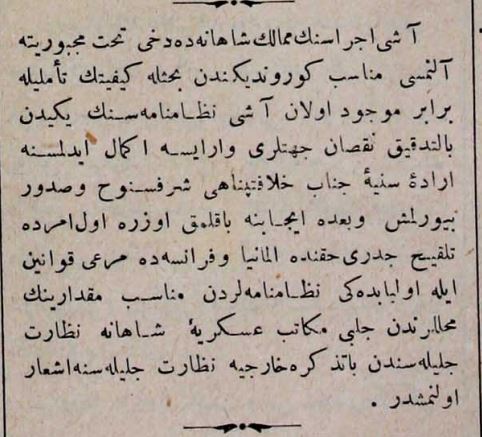 آشی اجراسنك ممالك شاهانه‌ده‌دخی تحت مجبوریته
آلنمسی مناسب كوروندیكندن بحثله كیفیتك تأملیله
برابر موجود اولان آشی نظامنامه‌سنك یكیدن
بالتدقیق نقصان جهتلری وارایسه اكمال ایدلمسنه
ارادهٔ سنیهٔ جناب خلافتپناهی شرفسنوح وصدور
بیورلمش وبعده ایجابنه باقلمق اوزره اول‌امرده
تلقیح جدری‌حقنده المانیا وفرانسه‌ده مرعی قوانین
ایله اولبابده‌كی نظامنامه‌لردن مناسب مقدارینك
محللرندن جلبی مكاتب عسكریهٔ شاهانه نظارت
جلیله‌سندن باتذكره‌خارجیه نظارت جلیله‌سنه‌اشعار
اولنمشدر .